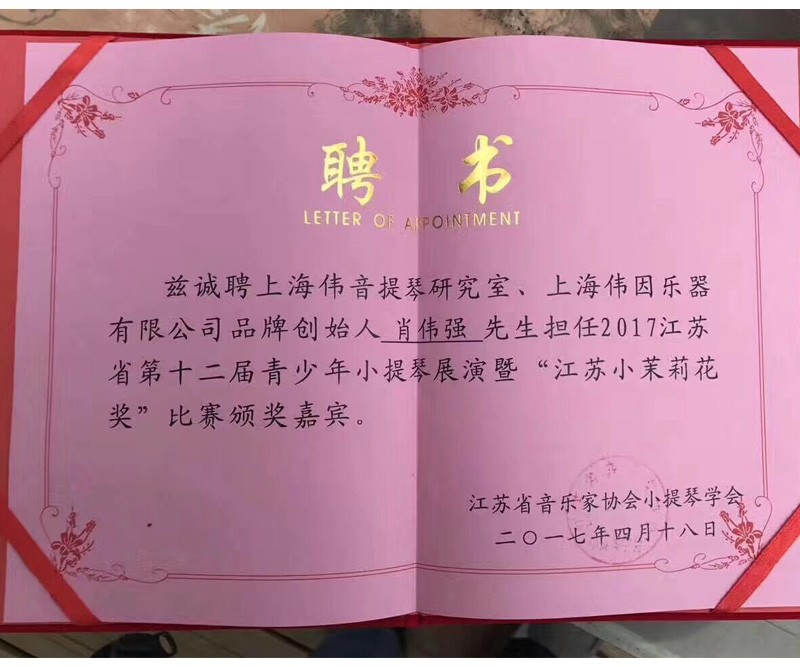 聘书
LETTER OF APPOINTMENT
兹诚聘上海伟音提琴研究室、上海伟因乐器
有限公司品牌创始人 肖伟强 先生担任2017江苏
省第十二届青少年小提琴展演暨“江苏小茉莉花
奖”比赛颁奖嘉宾。
江苏省音乐家协会小提琴学会
二〇一七年四月十八日